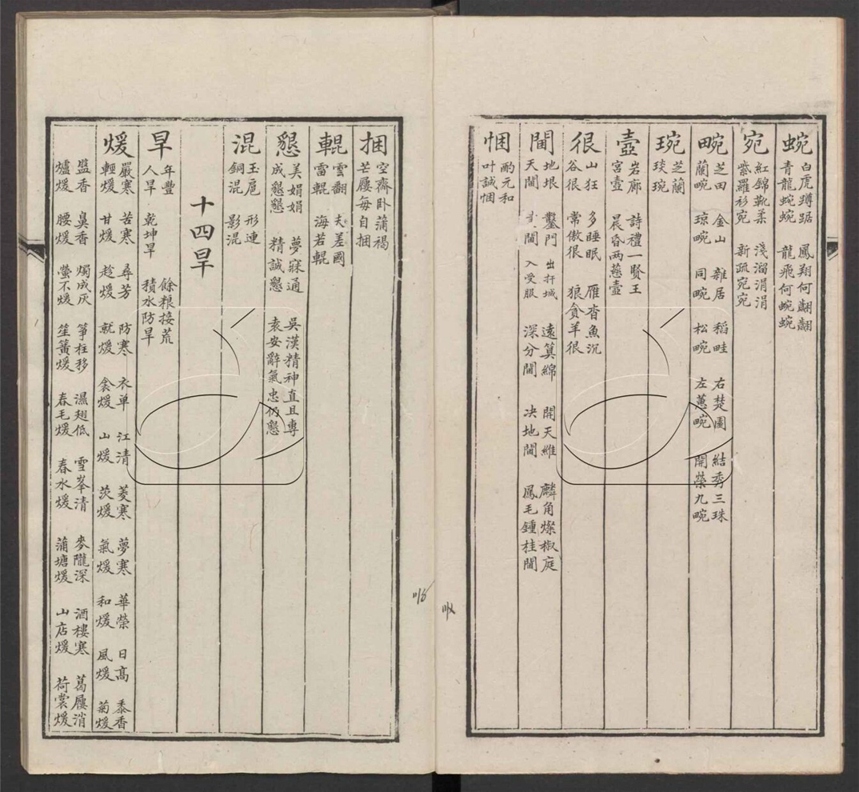 蜿
白虎蹲踞　鳳翔何翩翩
青龍蜿蜿　龍飛何蜿蜿
宛
紅錦靴柔　淺溜涓涓
紫羅衫宛　新疏宛宛
畹
芝田　金山　雜居　稻畦　右楚圃　結秀三珠
蘭畹　琼畹　同畹　松畹　左蕙畹　開榮九畹
琬
芝蘭
琰琬
壼
岩廊　詩禮一賢王
宮壼　晨昏两慈壼
很
山狂　多睡眠　雁杳魚沉
谷很　常傲很　狼貪羊很
閫
地垠　鑿門　出扞城　遠算綿　開天維　麟角燦椒庭
天閫　閫　入受服　深分閫　决地閫　鳳毛鍾桂閫
悃
酌元和
叶誠悃
捆
空齋卧蒲褐
芒屨每自捆
輥
雲翻　夫差國
雷輥　海若輥
懇
美娟娟　夢寐通　吳漢精神直且專
成懇懇　精誠懇　袁安辭氣忠仍懇
混
玉扈　形連
銅混　影混
十四旱
旱
年豐　餘粮接荒
人旱　乾坤旱　積水防旱
煖
嚴寒　苦寒　尋芳　防寒　衣单　江清　菱寒　夢寒　華榮　日高　黍香
輕煖　甘煖　趁煖　就煖　衾煖　山煖　茨煖　氣煖　和煖　風煖　菊煖
盬香　臭香　燭成灰　箏柱移　濕翅低　雪峯清　麥隴深　酒樓寒　葛屨消
爐煖　腰煖　螢不煖　笙簧煖　春毛煖　春水煖　蒲塘煖　山店煖　荷裳煖